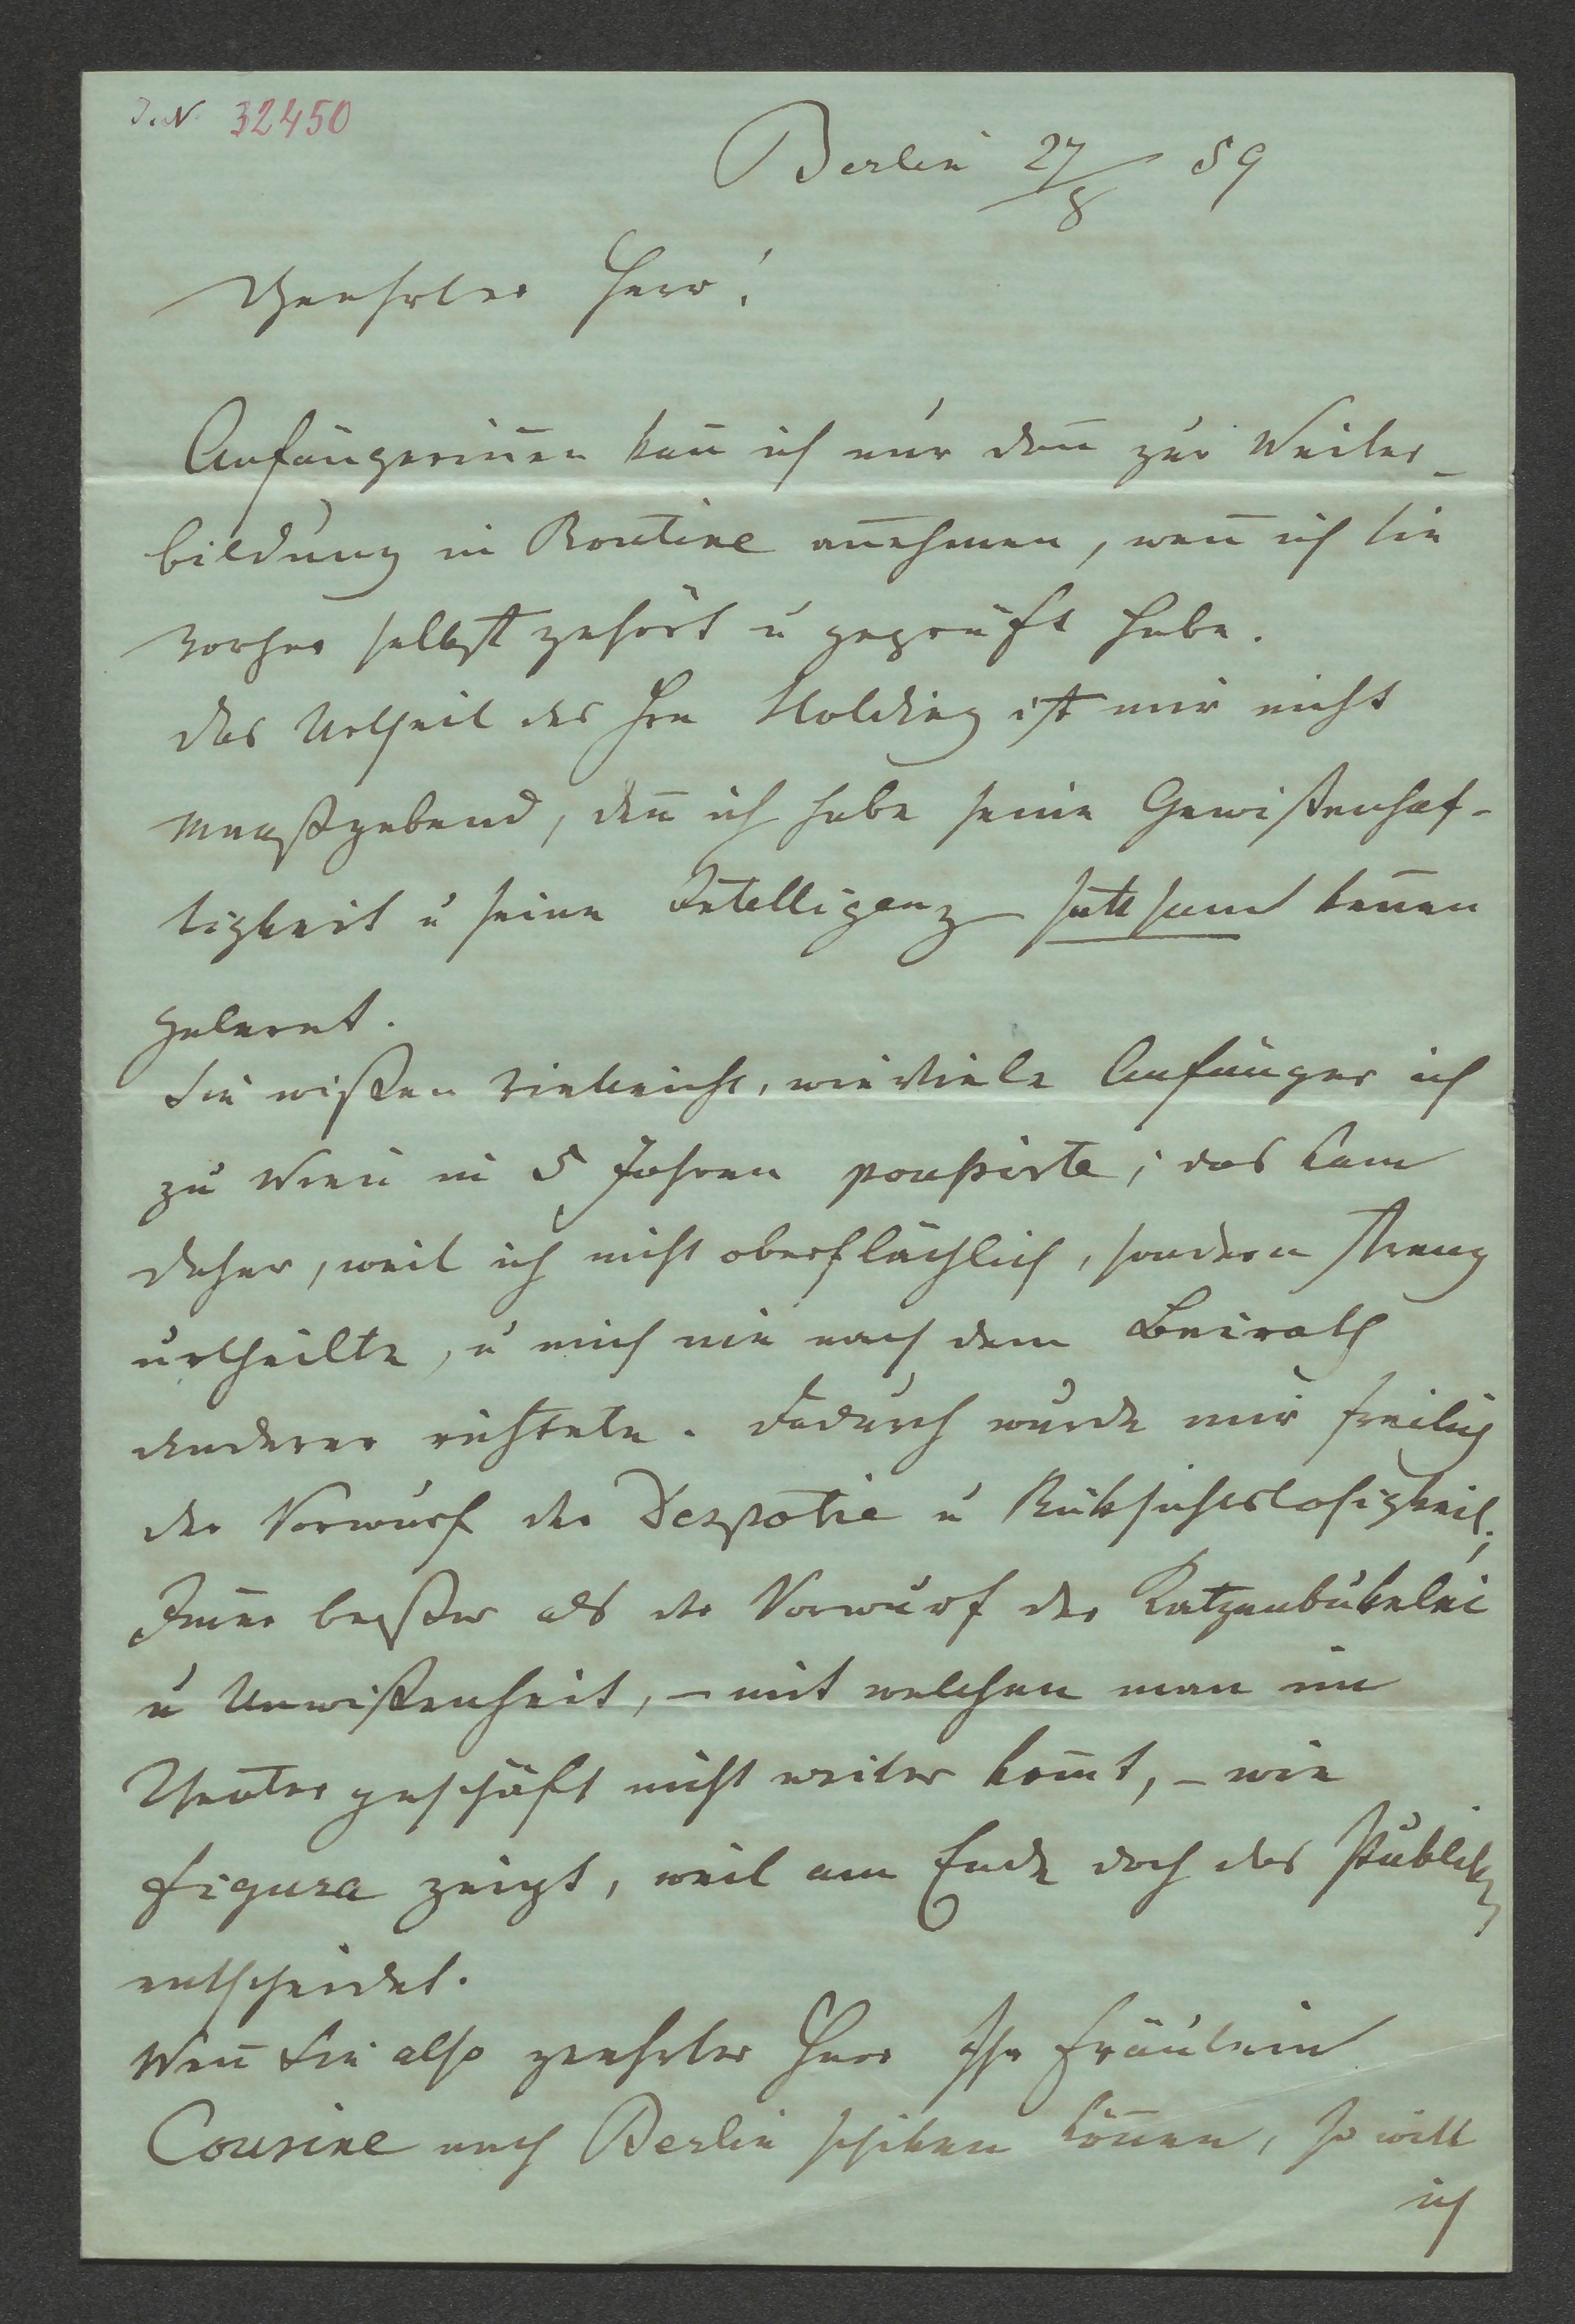 J.N. 32450
Berlin 27/8 59
Geehrter Herr!
Anfängerin̅en kan̅ ich nur dan̅ zur Weiter-
bildung in Routine an̅ehmen, wen̅ ich sie
vorher selbst gehört u geprüft habe.
Das Urtheil des Hrn Holding ist mir nicht
maaßgebend, den̅ ich habe seine Gewißenhaf-
tigkeit u seine Intelligenz sattsam ken̅en
gelernt.
Sie wißen vielleicht, wie viele Anfänger ich
zu Wien in 5 Jahren poußirte; das kam
daher, weil ich nicht oberflächlich, sondern streng
urtheilte, u mich nie nach dem Beirath
Anderer richtete. Dadurch wurde mir freilich
der Vorwurf der Despotie u Rüksichtslosigkeit;
Im̅er beßer als der Vorwurf der Katzenbukelei
u Unwißenheit, – mit welchen man im
Theatergeschäft nicht weiter kom̅t, – wie
Figura zeigt, weil am Ende doch das Publik
entscheidet.
Wen̅ Sie also geehrter Herr Ihr Fräulein
Cousine nach Berlin schiken kön̅en, so will
ich